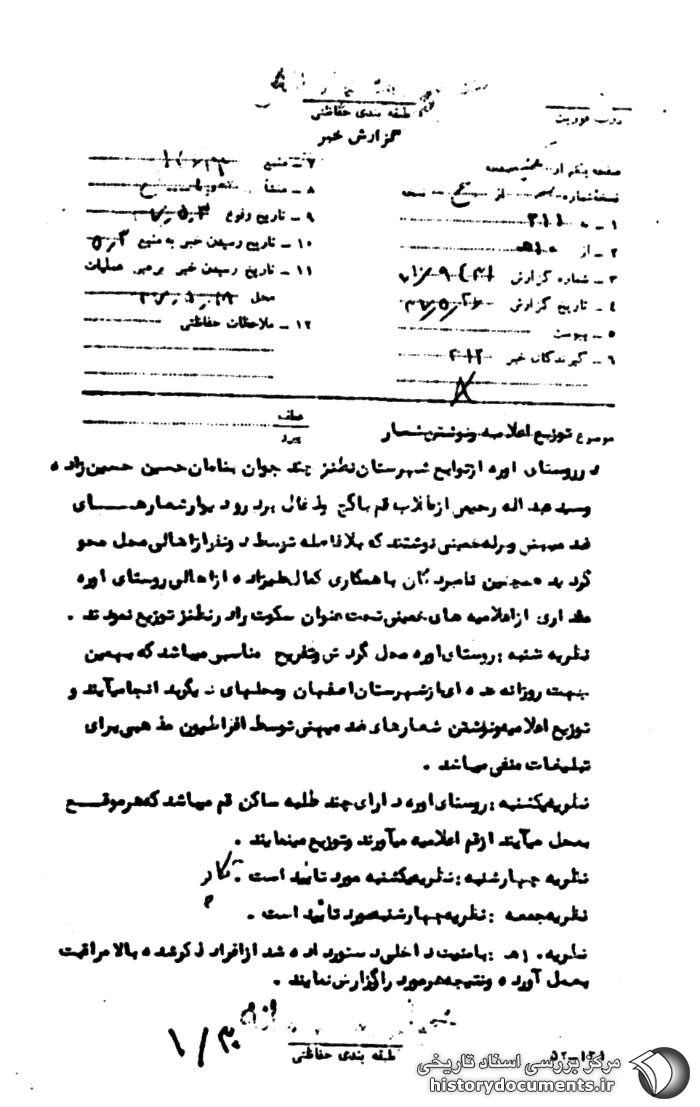 طبقه بندی حفاظتی
گزارش خبر
صفحه یکم از
نسخه شماره از نسخه
۱ – به ۳۱۱
۲ – از ۱۰ه‍
۳ – شماره گزارش
۴ – تاریخ گزارش
۵ – پیوست
۶ – گیرندگان خبر ۳۱۲
۷ – منبع
۸ – منشأ
۹ – تاریخ وقوع
۱۰ – تاریخ رسیدن خبر به منبع
۱۱ – تاریخ رسیدن خبر برهبر عملیات
محل
۱۲ – ملاحظات حفاظتی
موضوع توزیع اعلامیه و نوشتن شعار
عطف
پیرو
در روستای اوره از توابع شهرستان نطنز چند جوان بنامان حسین حسین زاده
وسید عبداله رحیمی از طلاب قم با گچ و ذغال بر در و دیوار شعارهای
ضد میهنی و له خمینی نوشتند که بلافاصله توسط دو نفر از اهالی محل محو
گردیده همچنین نامبردگان با همکاری کمال عظیم زاده از اهالی روستای اوره
مقداری از اعلامیه های خمینی تحت عنوان سکوت را در نطنز توزیع نمودند .
نظریه شنبه : روستای اوره محل گردش و تفریح مناسبی میباشد که بهمین
جهت روزانه عده ای از شهرستان اصفهان و محلهای دیگر به آنجا میآیند و
توزیع اعلامیه و نوشتن شعارهای ضد میهنی توسط افراطیون مذهبی برای
تبلیغات منفی میباشد .
نظریه یکشنبه : روستای اوره دارای چند طلبه ساکن قم میباشد که هر موقع
به محل میآیند از قم اعلامیه میآورند و توزیع مینمایند .
نظریه چهارشنبه : نظریه یکشنبه مورد تائید است .
نظریه جمعه : نظریه چهارشنبه مورد تائید است .
نظریه ۱۰ه‍ : بامنیت داخلی دستور داده شد از افراد ذکر شده بالا مراقبت
بعمل آورده و نتیجه هر مورد را گزارش نمایند .
طبقه بندی حفاظتی
مرکز بررسی اسناد تاریخی
historydocuments.ir